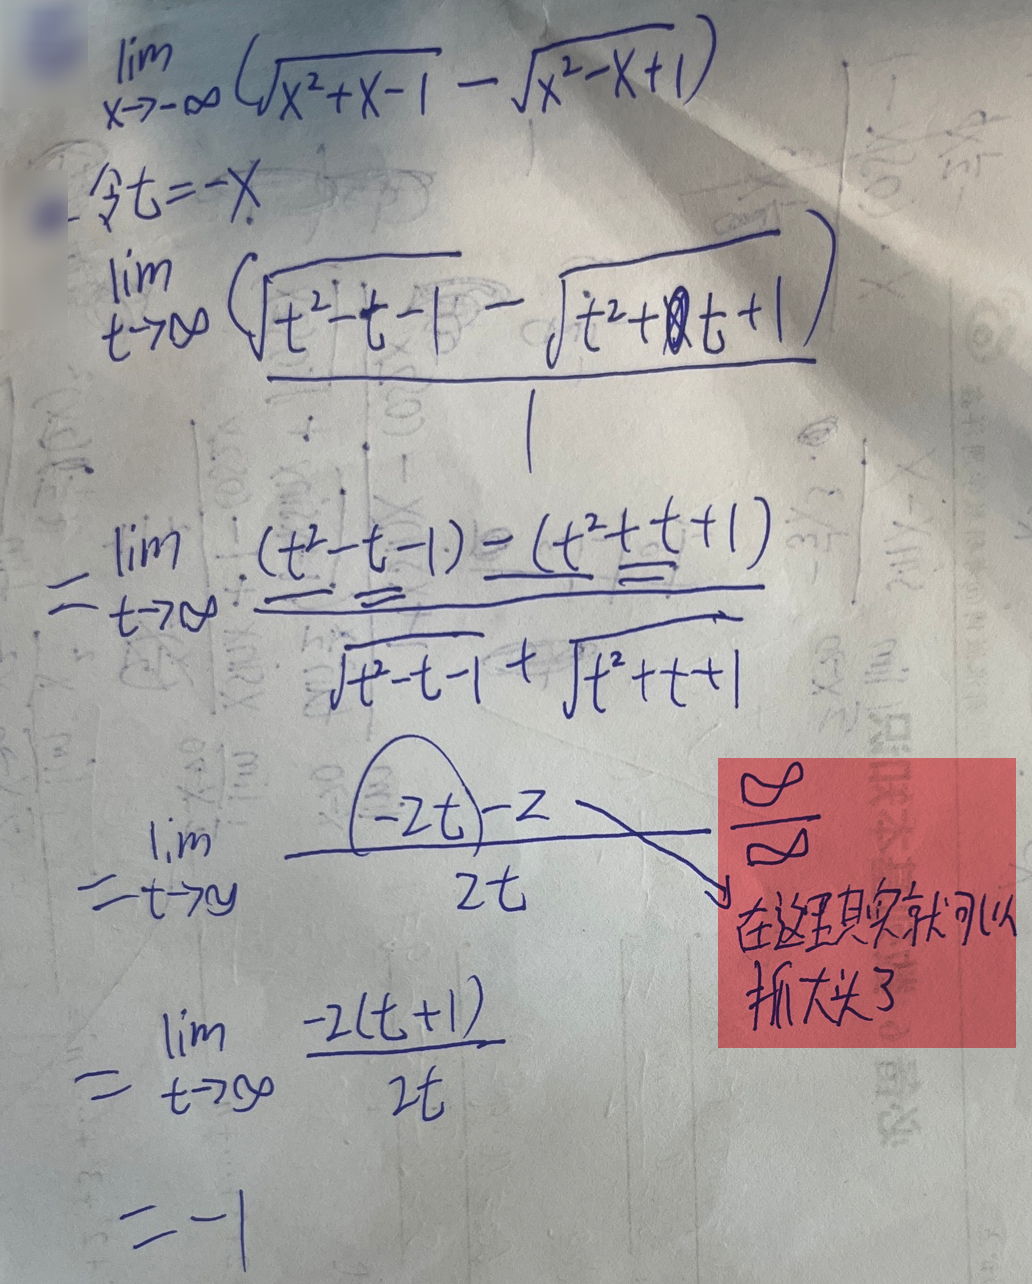 lim x→-∞ (√(x²+x-1) - √(x²-x+1))
令t=-x
lim t→∞ (√(t²-t-1) - √(t²+t+1))
1
= lim t→∞ ((t²-t-1)-(t²+t+1)) / (√(t²-t-1) + √(t²+t+1))
= lim t→∞ (-2t-2) / 2t
∞/∞
在这里其实就可以
抓大头了
= lim t→∞ -2(t+1) / 2t
= -1